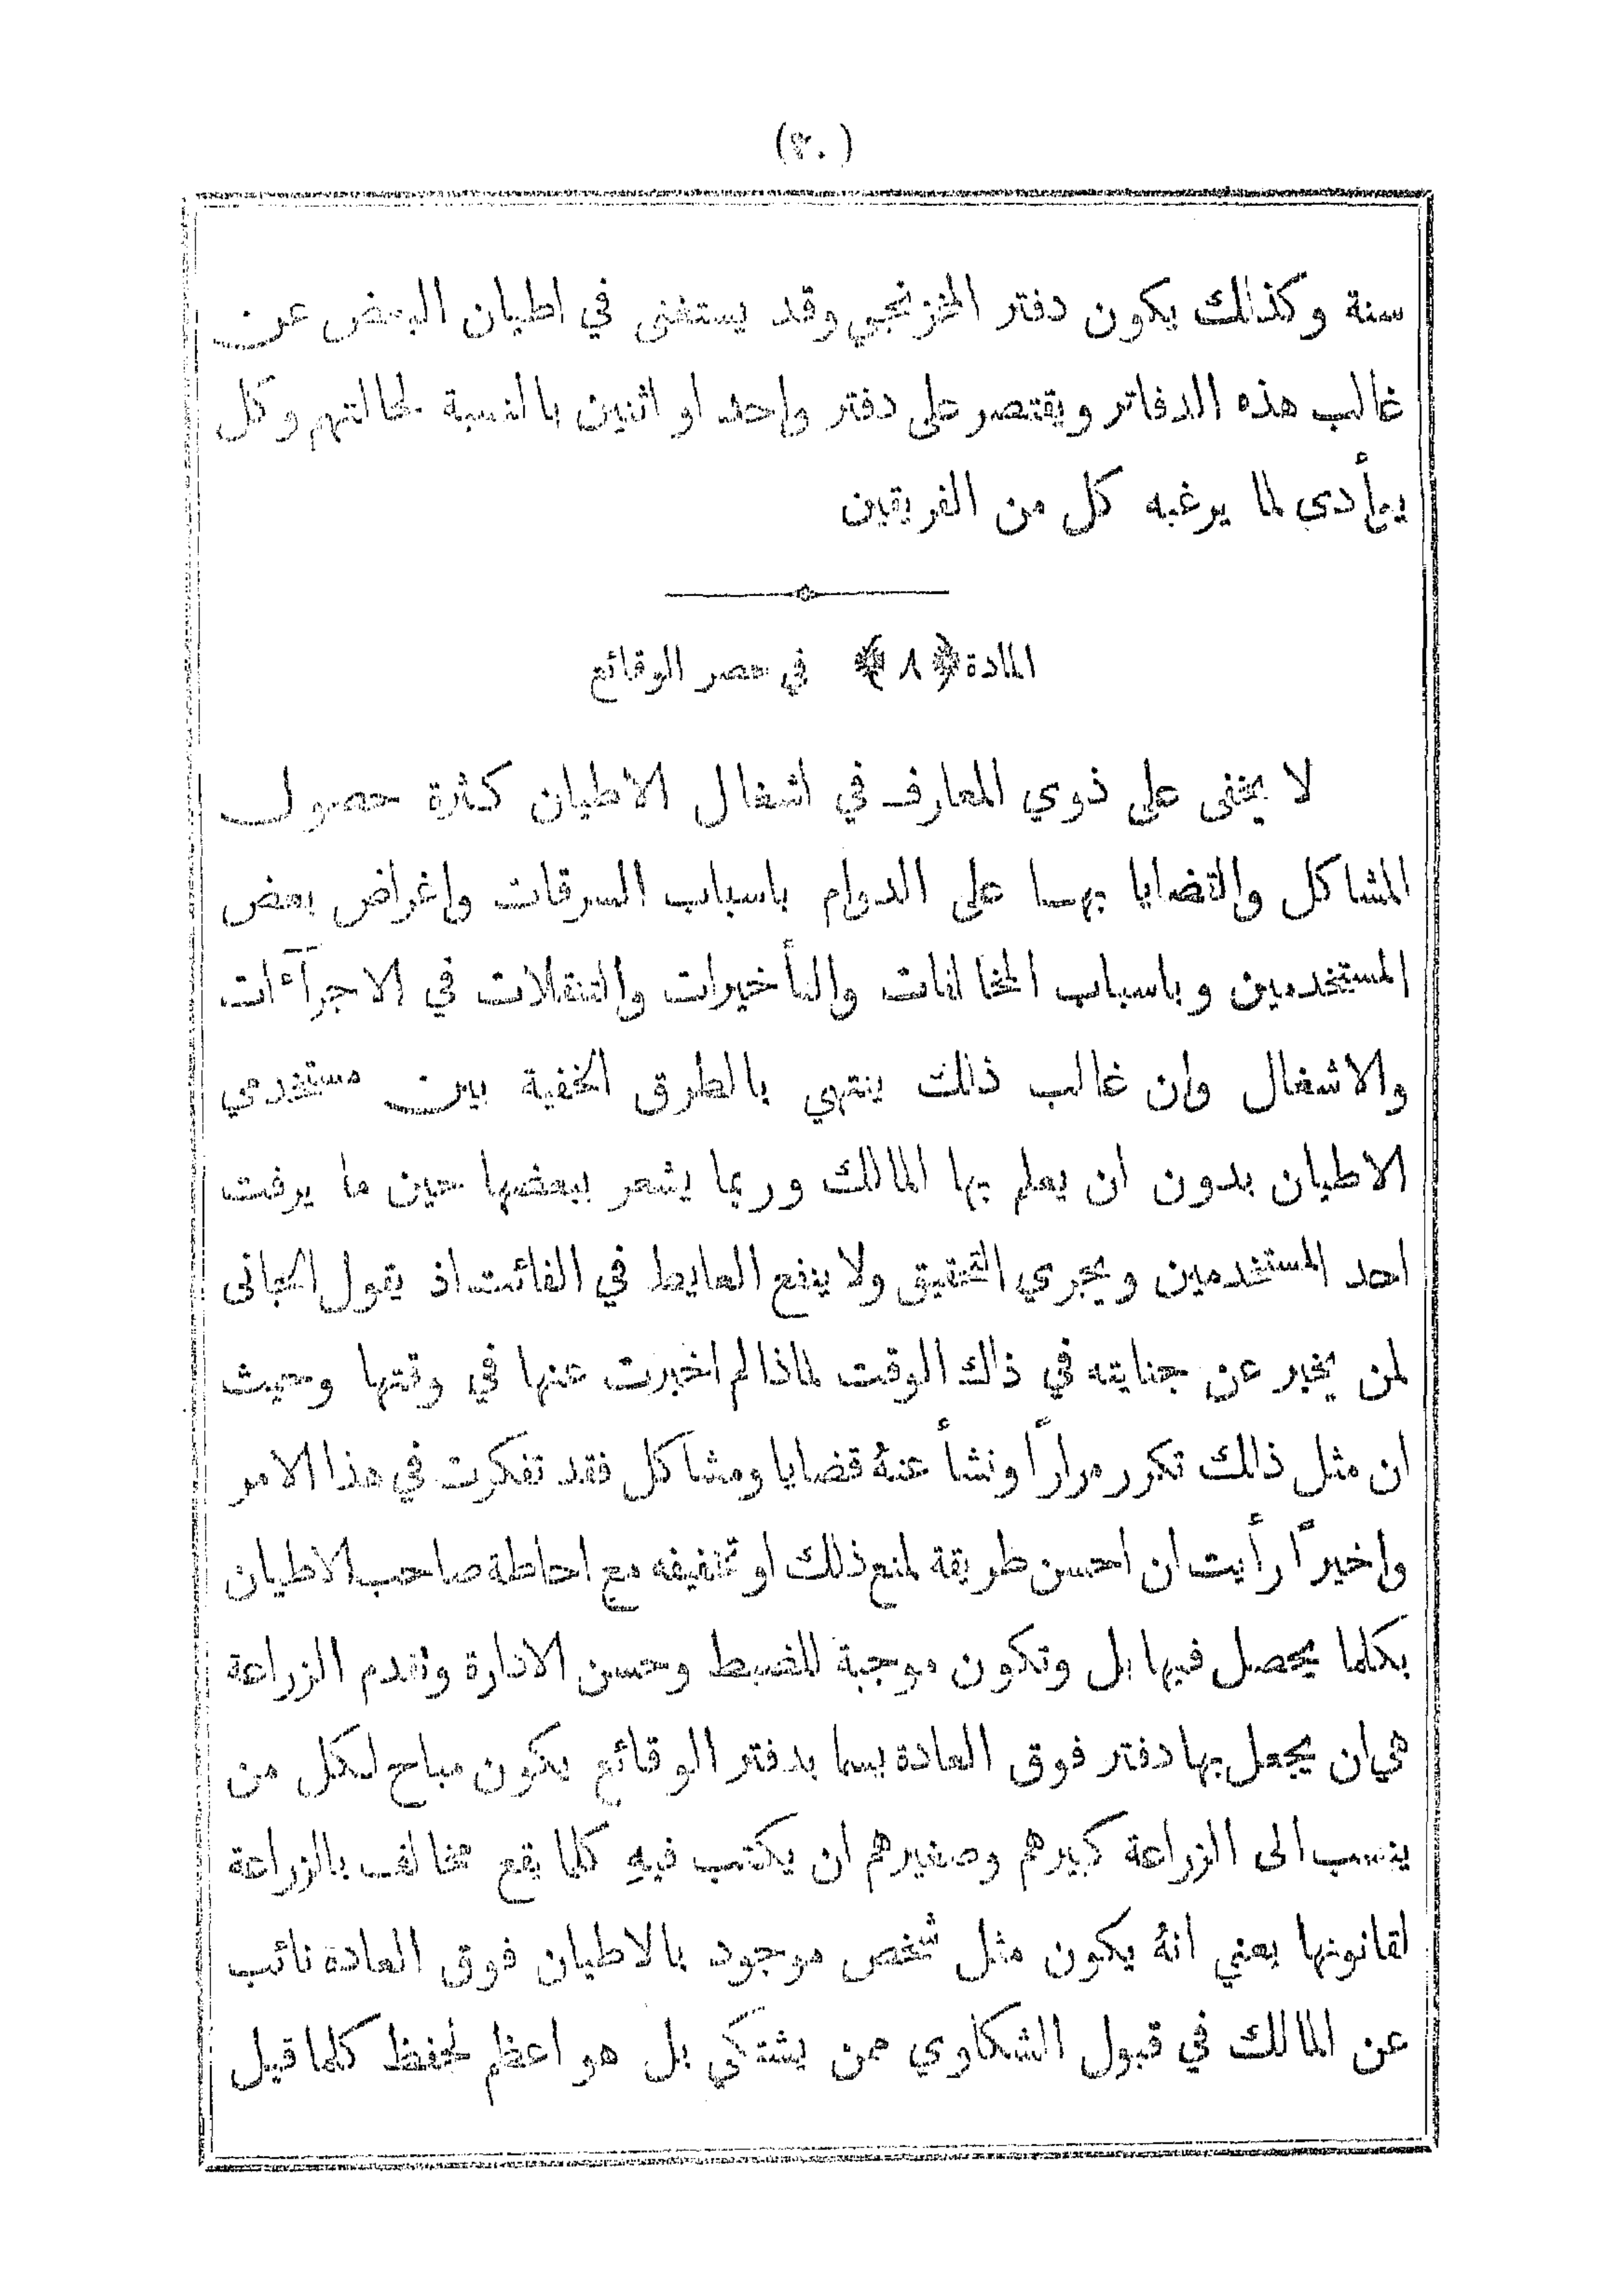 سنة وكذلك يكون دفتر المخزنجي وقد يستغنى في اطيان البعض عن
غالب هذه الدفاتر ويقتصر على دفتر واحد او اثنين بالنسبة لحالتهم وكل
يوأدى لما يرغبه كل من الفريقين
المادة ﴿٨﴾ في حصر الوقائع
لا يخفى على ذوي المعارف في اشغال الاطيان كثرة حصول
المشاكل والقضايا بهـا على الدوام باسباب السرقات واغراض بعض
المستخدمين وباسباب المخالفات والتأخيرات والتنقلات في الاجرآءات
والاشغال وان غالب ذلك ينتهي بالطرق الخفية بين مستخدمي
الاطيان بدون ان يعلم بها المالك وربما يشعر ببعضها حين ما يرفت
احد المستخدمين ويجري التحقيق ولا ينفع العايط في الفائت اذ يقول الجانى
لمن يخبر عن جنايته في ذاك الوقت لماذا لم اخبرت عنها في وقتها وحيث
ان مثل ذالك تكرر مراراً ونشأ عنهُ قضايا ومشاكل فقد تفكرت في هذا الامر
واخيراً رأيت ان احسن طريقة لمنع ذلك او تخفيفه مع احاطة صاحب الاطيان
بكلما يحصل فيها بل وتكون موجبة للضبط وحسن الادارة وتقدم الزراعة
هي ان يجعل بها دفتر فوق العادة يسما بدفتر الوقائع يكون مباح لكل من
ينسب الى الزراعة كبيرهم وصغيرهم ان يكتب فيهِ كلما يقع مخالف بالزراعة
لقانونها بعني انهُ يكون مثل شخص موجود بالاطيان فوق العادة نائب
عن المالك في قبول الشكاوي ممن يشتكي بل هو اعظم لحفظ كلما قيل